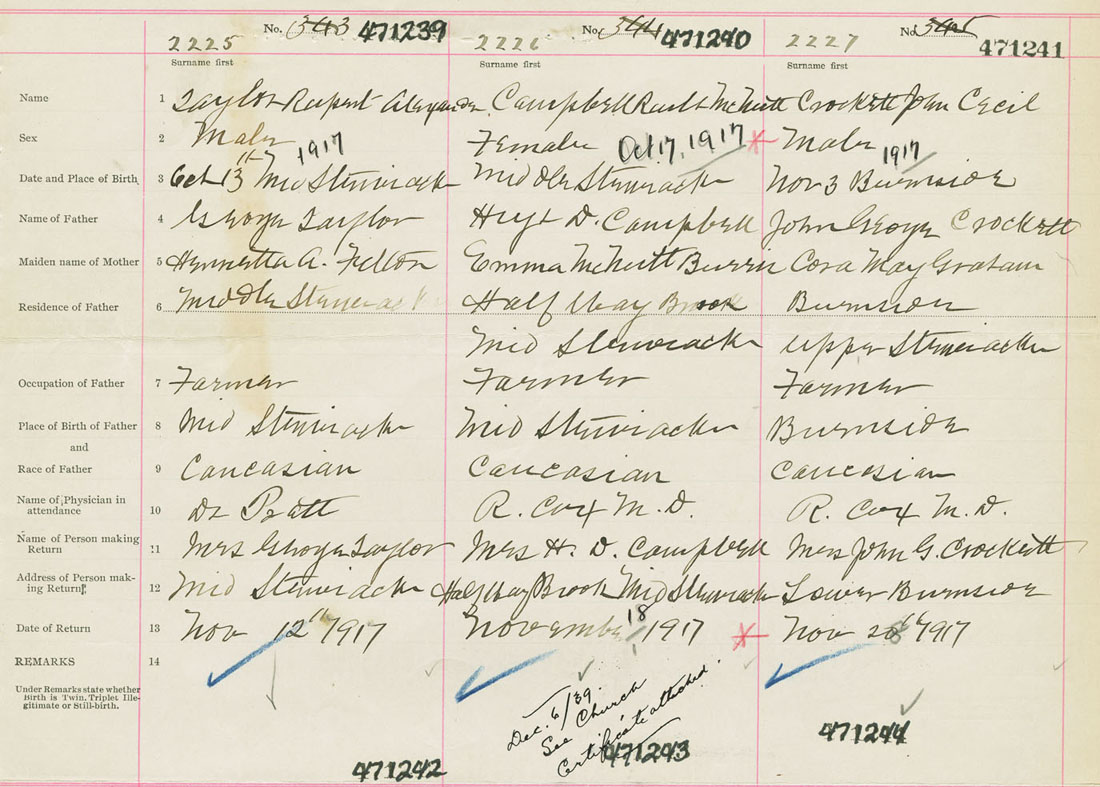 No. 343 471239 No. 344 471240 No. 345 471241
2225 2226 2227
Surname first Surname first Surname first
Name 1 Taylor Rupert Alexander Campbell McNutt Crockett John Cecil
Sex 2 Male Female Male
1917 Oct. 17, 1917 1917
Date and Place of Birth 3 Oct 13th Mid Stewiacke Middle Stewiacke Nov 3 Burnside
Name of Father 4 George Taylor D. Campbell John George Crockett
Maiden name of Mother 5 Henrietta A. Fulton Emma McNutt Cora May Graham
Residence of Father 6 Middle Stewiacke Half Way Brook Burnside
Mid Stewiacke Upper Stewiacke
Occupation of Father 7 Farmer Farmer Farmer
Place of Birth of Father 8 Mid Stewiacke Mid Stewiacke Burnside
and
Race of Father 9 Caucasian Caucasian Caucasian
Name of Physician in
attendance 10 Dr R. Cox M.D. R. Cox M.D.
Name of Person making
Return 11 Mrs George Taylor Mrs H. D. Campbell Mrs John G. Crockett
Address of Person mak-
ing Return 12 Mid Stewiacke Half Way Brook Mid Stewiacke Lower Burnside
Date of Return 13 Nov 12th 1917 November 18 1917 Nov 20th 1917
REMARKS 14
Under Remarks state whether
Birth is Twin, Triplet Ille-
gitimate or Still-birth.
Dec. 6/39.
See Church
Certificate attached.
471242 471243 471244